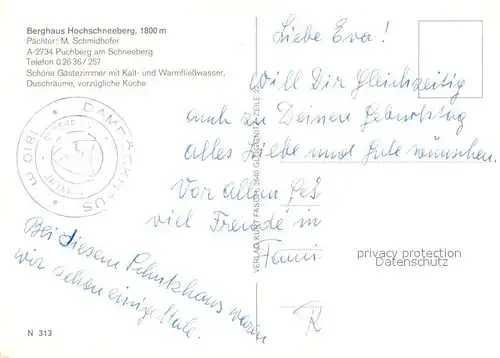 Berghaus Hochschneeberg, 1800 m
Pächter: M. Schmidhofer
A-2734 Puchberg am Schneeberg
Telefon 0 26 36 / 257
Schöne Gästezimmer mit Kalt- und Warmfließwasser,
Duschräume, vorzügliche Küche
DAMBÖCKHAUS
Liebe Eva!
Will Dir Gleichzeitig
auch zu Deinen Geburtstag
alles Liebe und Gute wünschen.
Vor allen
viel Freude in
Bei diesem Schutzhaus waren
wir schon einige Male.
VERLAG KURT 2640
privacy protection
Datenschutz
N 313